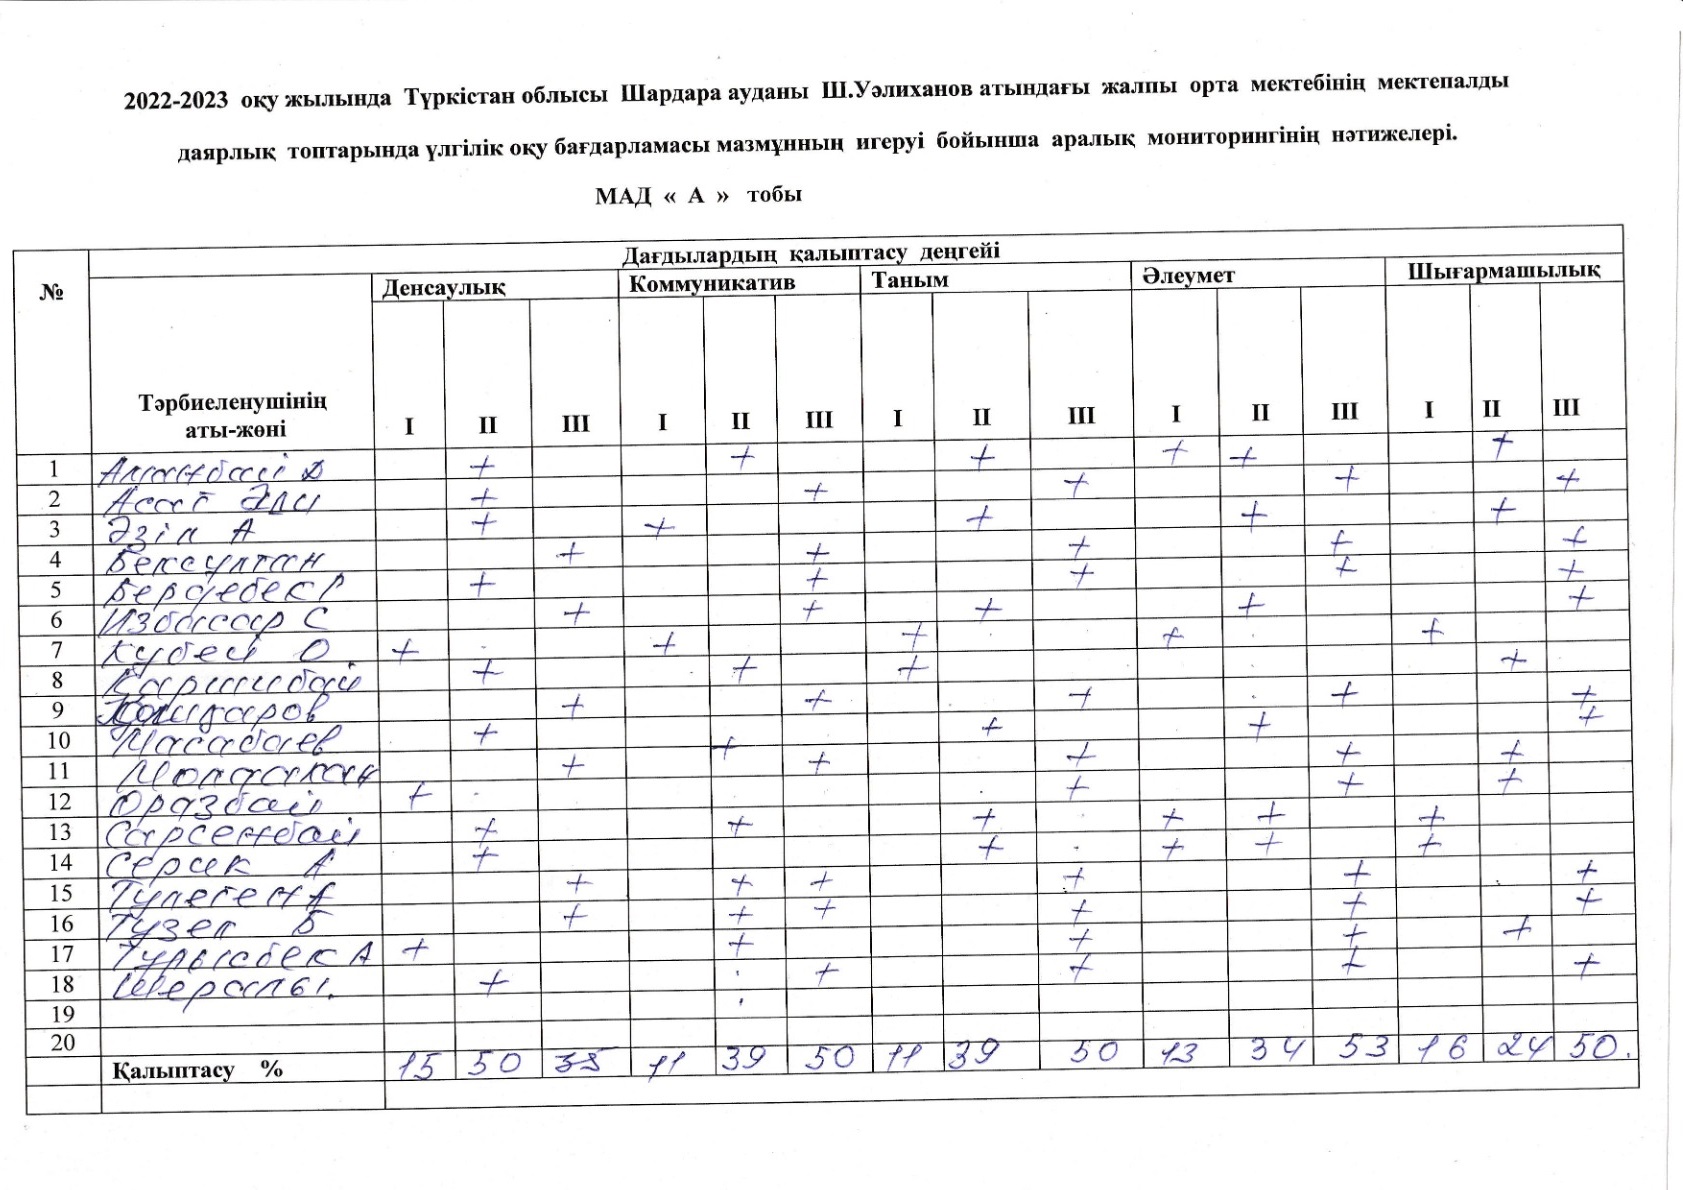 2022-2023 оқу жылында Түркістан облысы Шардара ауданы Ш.Уәлиханов атындағы жалпы орта мектебінің мектепалды
даярлық топтарында үлгілік оқу бағдарламасы мазмұнның игеруі бойынша аралық мониторингінің нәтижелері.
МАД « А » тобы
Дағдылардың қалыптасу деңгейі
№ Денсаулық Коммуникатив Таным Әлеумет Шығармашылық
Тәрбиеленушінің
аты-жөні I II III I II III I II III I II III I II III
1 Аманбай Д + + + + + +
2 Асат Әли + + + + +
3 Әзіл А + + + + +
4 Бексултан + + + + +
5 Бердебек Р + + + + +
6 Избасар С + + + + +
7 Кубей О + + + + +
8 Каршибай + + + +
9 Кошкаров + + + + +
10 Масабаев + + + + +
11 Молдахан + + + + +
12 Оразбай + + + +
13 Сарсенбай + + + + + +
14 Серик А + + + + +
15 Тулеген А + + + + + +
16 Тузел Б + + + + + +
17 Турысбек А + + + + +
18 Шералы. + + + + +
19
20
Қалыптасу % 15 50 35 11 39 50 11 39 50 13 34 53 16 24 50.